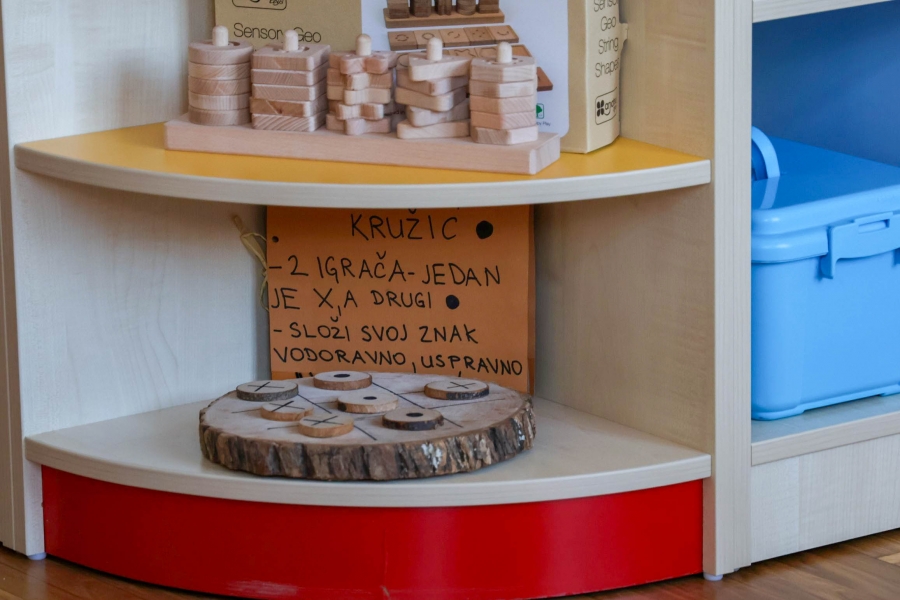 Sensor Geo
Senso
Geo
String
Shape
KRUŽIĆ ●
-2 IGRAČA-JEDAN
JE X, A DRUGI ●
-SLOŽI SVOJ ZNAK
VODORAVNO, USPRAVNO